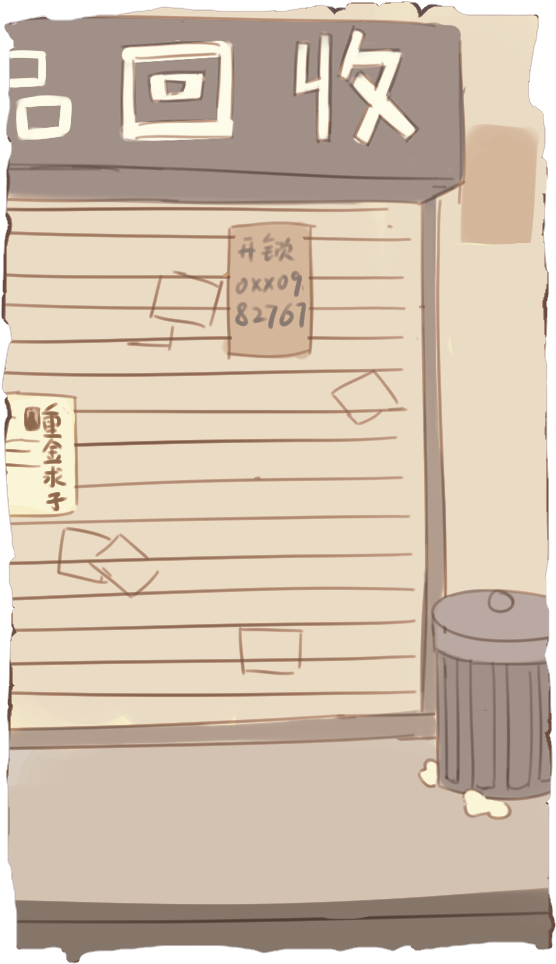 品回收
开锁
0xx09
82767
重金求子